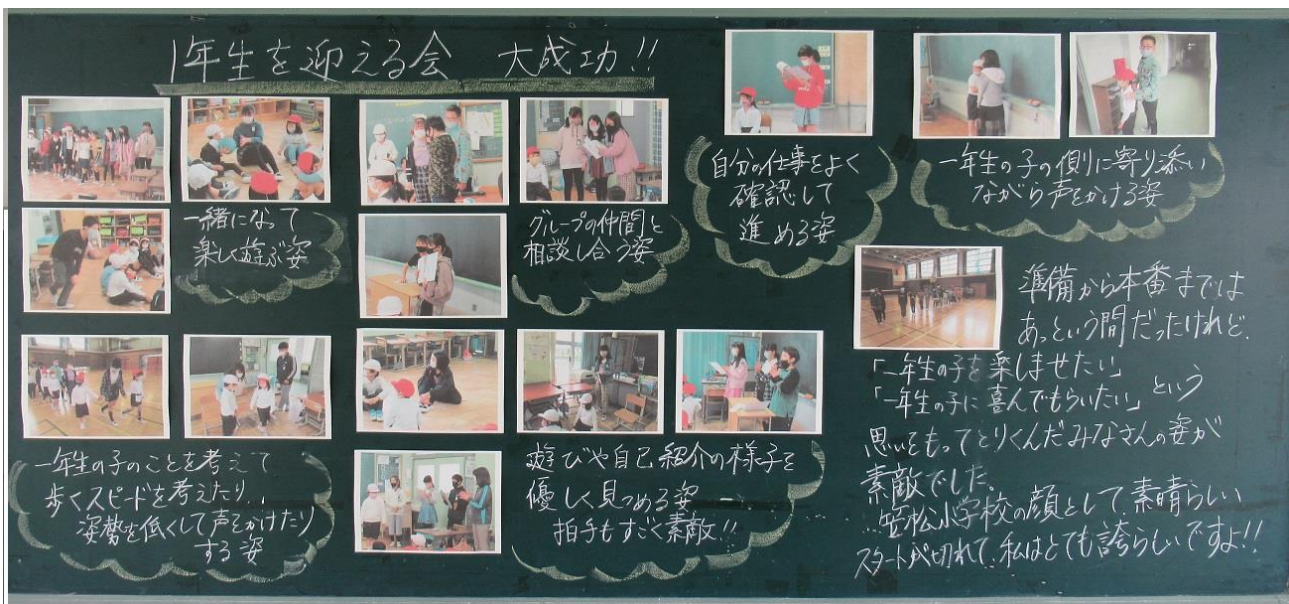 1年生を迎える会 大成功!!
一緒になって
楽しく遊ぶ姿
グループの仲間と
相談し合う姿
自分の仕事をよく
確認して
進める姿
一年生の子の側に寄り添い
ながら声をかける姿
一年生の子のことを考えて
歩くスピードを考えたり...
姿勢を低くして声をかけたり
する姿
遊びや自己紹介の様子を
優しく見つめる姿
拍手もすごく素敵!!
準備から本番までは
あっという間だったけれど、
「一年生の子を楽しませたい」
「一年生の子に喜んでもらいたい」という
思いをもってとりくんだみなさんの姿が
素敵でした。
笠松小学校の顔として、素晴らしい
スタートが切れて、私はとても誇らしいですよ!!